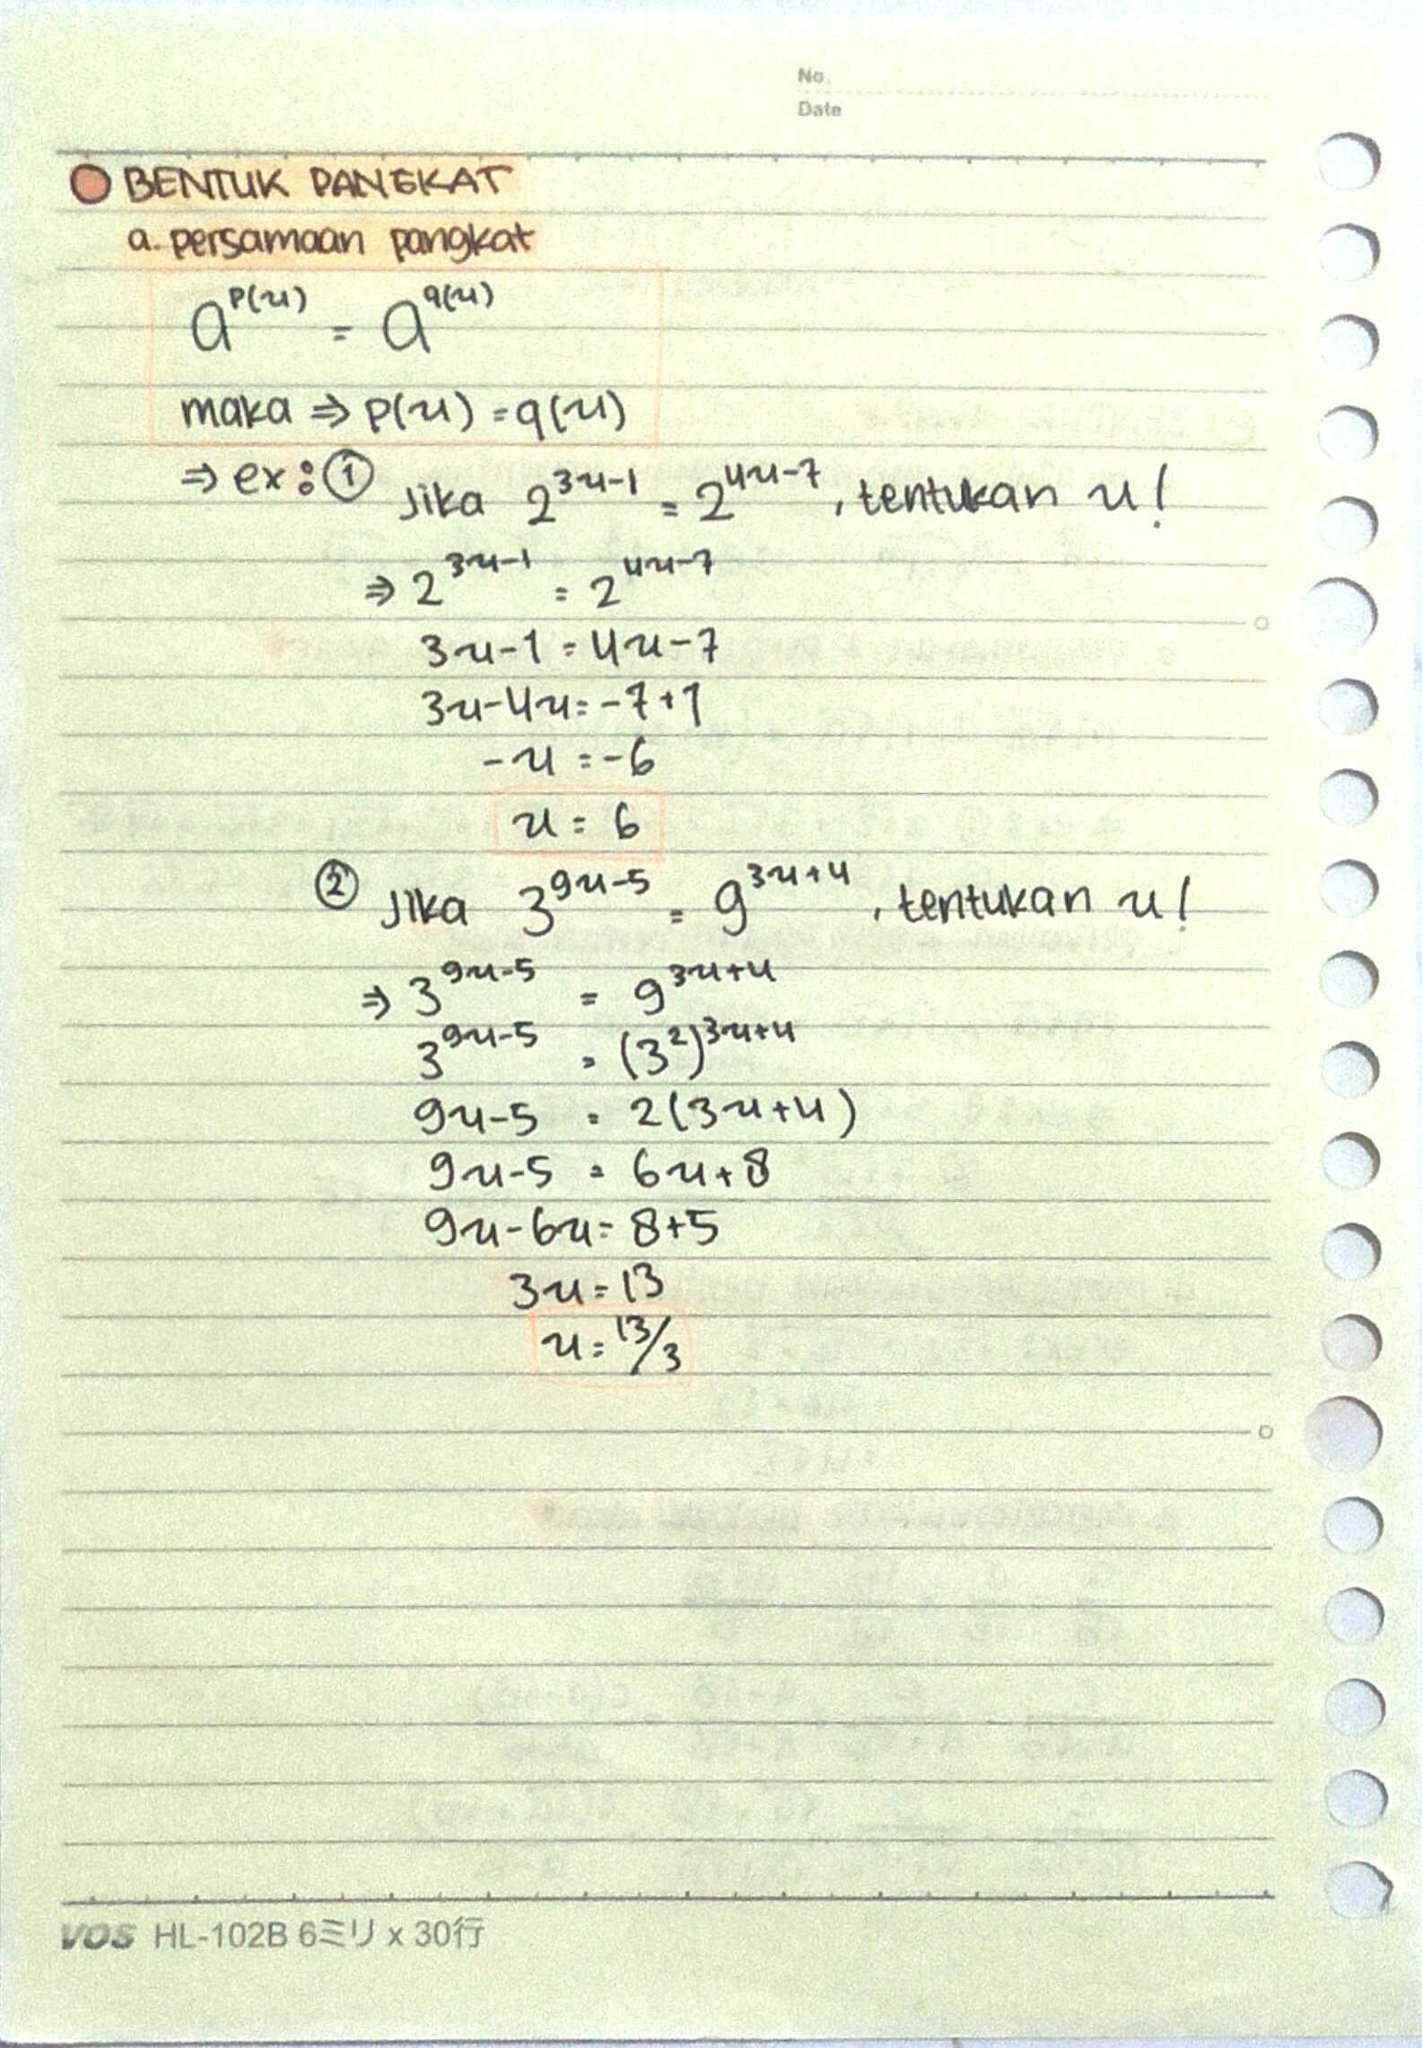 No.
Date
BENTUK PANGKAT
a. persamaan pangkat
a^p(x) = a^q(x)
maka ⇒ p(x) = q(x)
⇒ ex: ① Jika 2^3x-1 = 2^4x-7, tentukan x!
⇒ 2^3x-1 = 2^4x-7
3x-1 = 4x-7
3x-4x = -7+1
-x = -6
x = 6
② Jika 3^9x-5 = 9^3x+4, tentukan x!
⇒ 3^9x-5 = 9^3x+4
3^9x-5 = (3^2)^3x+4
9x-5 = 2(3x+4)
9x-5 = 6x+8
9x-6x = 8+5
3x = 13
x = 13/3
VOS HL-102B 6ミリ x 30行